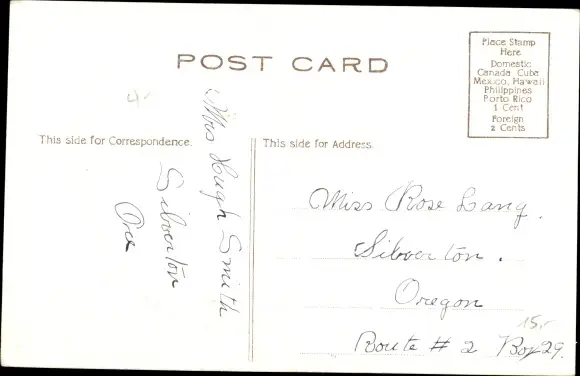 POST CARD
Place Stamp
Here
Domestic
Canada Cuba
Mexico, Hawaii
Philippines
Porto Rico
1 Cent
Foreign
2 Cents
4-
This side for Correspondence.
Mrs Hugh Smith
Silverton
Ore
This side for Address.
Miss Rose Lang.
Silverton.
Oregon
15,-
Route # 2 Box 29.